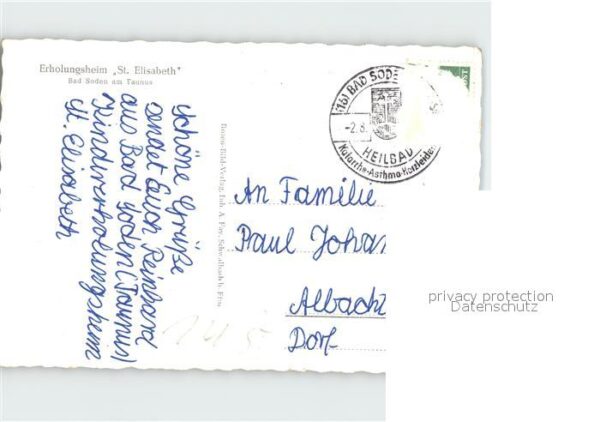 Erholungsheim „St. Elisabeth"
Bad Soden am Taunus
Schöne Grüße
sendet Euch Reinhard
aus Bad Soden (Taunus)
Kindererholungsheim
St. Elisabeth
(16) BAD SODE
-2.8.
HEILBAD
Katarrhe-Asthma-Herzleiden
An Familie
Paul Joha
Albach
Dorf
privacy protection
Datenschutz